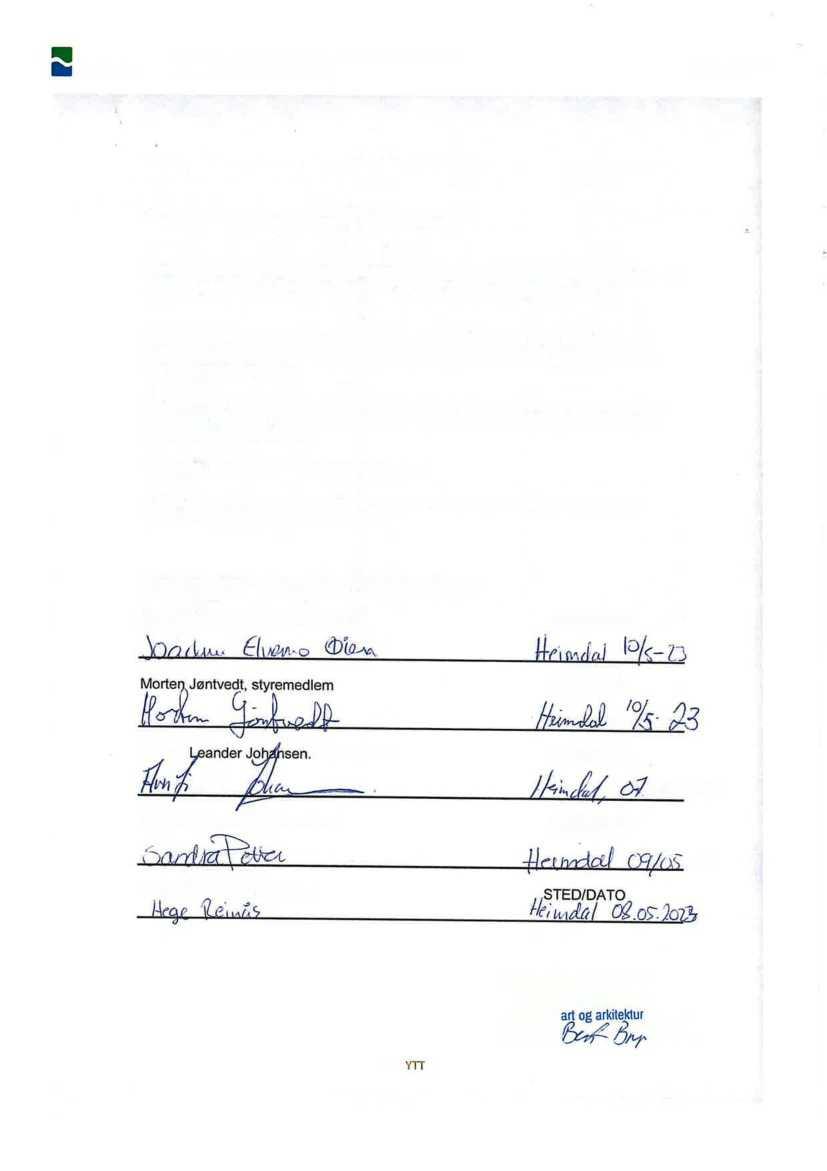 Heimdal 10/5-23
Morten Jøntvedt, styremedlem
Morten Jøntvedt Heimdal 10/5-23
Leander Johansen.
Heimdal, 07
Sandra Petter Heimdal 09/05
STED/DATO
Hege Reinås Heimdal 08.05.2023
art og arkitektur
YTT